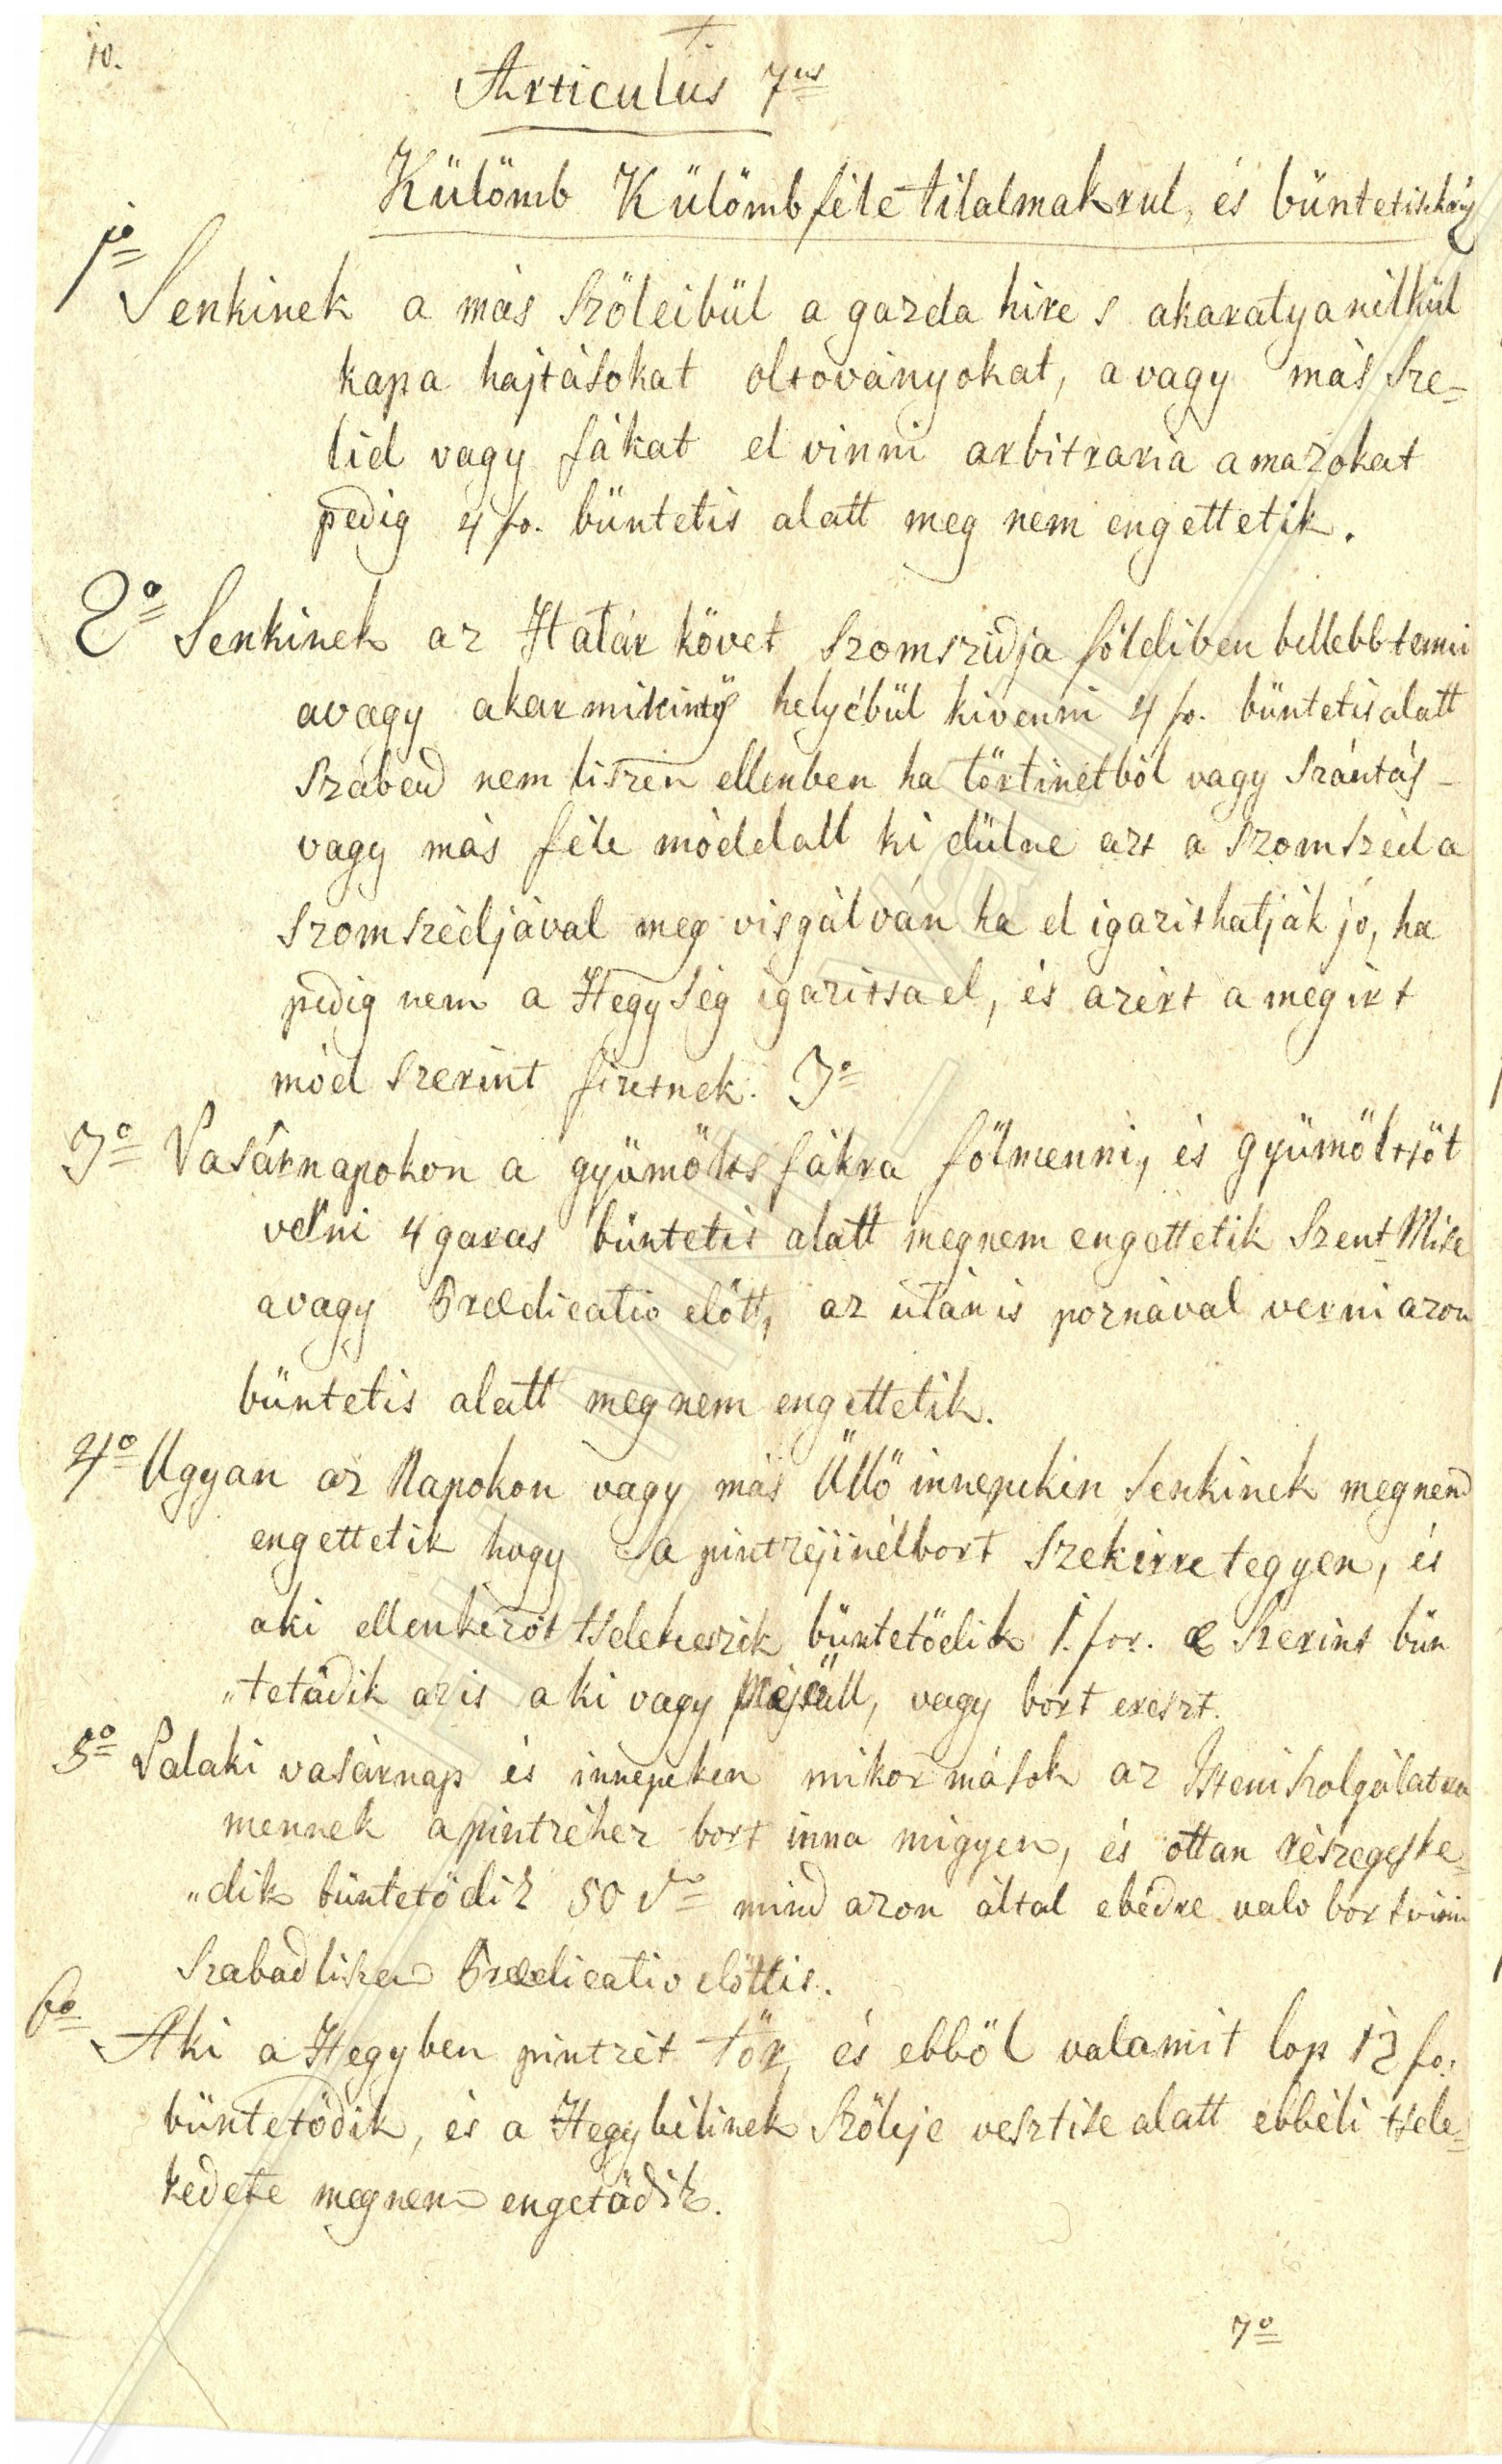 10.
Articulus 7us
Külömb Külömbféle tilalmakrul, és büntetisekrűl
1o Senkinek a más Szőleibül a gazda hire s akaratya nilkül
kapa hajtásokat oltoványokat, avagy más Sze-
lid vagy fákat el vinni arbitraria amazokat
pedig 4 fo. büntetis alatt meg nem engettetik.
2o Senkinek az Határ követ Szomszidja földiben bellebb tenni
avagy akarmikints helyébül kivenni 4 fo. büntetis alatt
Szabad nem liszen ellenben ha törtinetböl vagy Szántás-
vagy más féle móddall ki dülne azt a Szomszéd a
Szomszédjával meg visgálván ha el igazithatják jó, ha
pedig nem a Hegység igazitsa el, és azért a megirt
mód Szerint fizetnek. 3o
3o Vasárnapokon a gyümölts fákra fölmenni, és gyümöltsöt
verni 4 garas büntetis alatt megnem engettetik Szent Mise
avagy Prædicatio elött, az után is póznával verni azon
büntetis alatt megnem engettetik.
4o Ugyan az Napokon vagy más Üllö innepekin Senkinek megnem
engettetik hogy a pintzéjinél bort Szekirre tegyen, és
aki ellenkezöt tselekeszik büntetödik 1. for. e Szerint bün
„tetödik az is aki vagy méjjäll, vagy bort ereszt.
5o Valaki vasárnap és innepeken mikor mások az Isteni Szolgálatra
mennek a pintzéhez bort inna migyen, és ottan részegeske-
„dik büntetödik 50 do mind azon által ebédre valo bort vinni
Szabad liszen Prædicatio elöttis.
6o Aki a Hegyben pintzét tör, és ebböl valamit lop 12 fo:
büntetödik, és a Hegybélinek Szöleje vesztise alatt ebbéli tsele-
kedete megnem engetödik.
7o